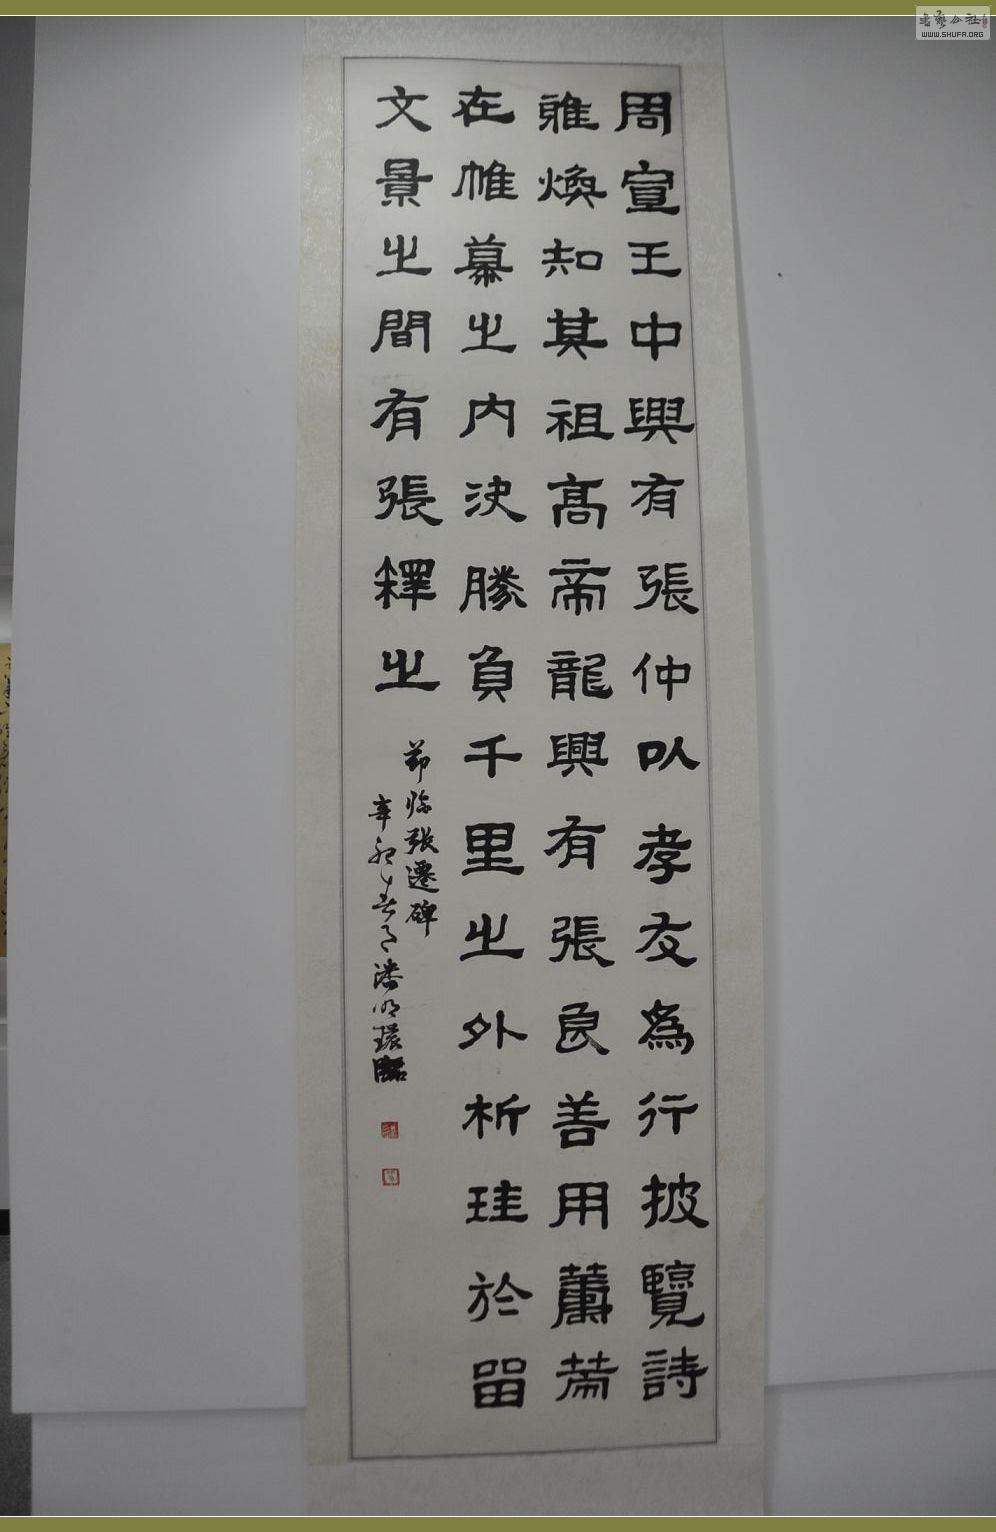 周宣王中興有張仲以孝友為行披覽詩
雅煥知其祖高帝龍興有張良善用蕭荋
在帷幕之内決勝負千里之外析珪於留
文景之間有張釋之
節臨張遷碑
辛卯春月潘明環臨
WWW.SHUFA.ORG